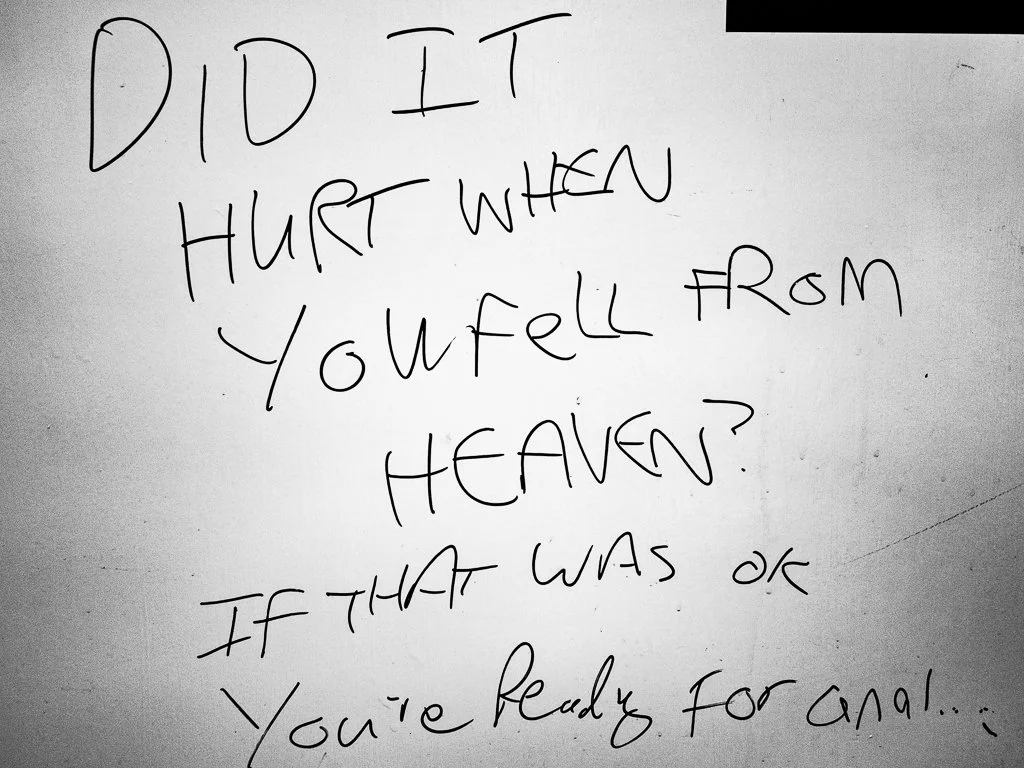 DID IT
HURT WHEN
YOU FELL FROM
HEAVEN?
IF THAT WAS OK
You're Ready For anal...